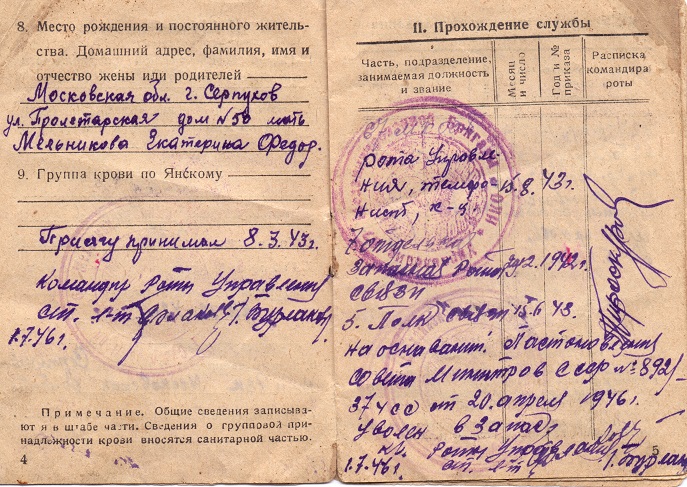 8. Место рождения и постоянного житель-
ства. Домашний адрес, фамилия, имя и
отчество жены или родителей
Московская обл. г. Серпухов
ул. Пролетарская дом № 50 мать
Мельникова Екатерина Федор.
9. Группа крови по Янскому
Присягу принимал 8.3.43г.
Командир Роты Управления
ст. л-т
1.7.46г.
Примечание. Общие сведения записыва-
ют я в штабе части. Сведения о групповой при-
надлежности крови вносятся санитарной частью.
4
II. Прохождение службы
Часть, подразделение,
занимаемая должность
и звание
Месяц
и число
Год и №
приказа
Расписка
командира
роты
рота Управле-
ния, телефо- 15.8. 43г.
нист, к-р.
7 отдельн
Запасная Рота 12.1942г.
связи
5. Полк связи 15.6 43.
на основании. Постановления
Совета Министров СССР № 892/-
374сс от 20 апреля 1946г.
уволен в Запас
Роты Управлен
1.7.46г. ст. л-т
5